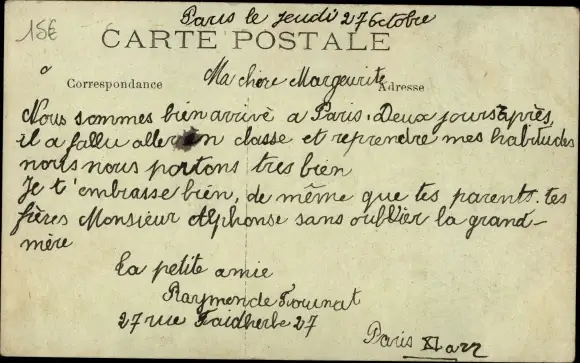 Paris le jeudi 27 Octobre
15€
CARTE POSTALE
Correspondance
Ma chère Margeurite
Adresse
Nous sommes bien arrivé a Paris. Deux jours après,
il a fallu aller en classe et reprendre mes habitudes
nous nous portons tres bien
Je t'embrasse bien, de même que tes parents. tes
frères Monsieur Alphonse sans oublier la grand-
mère
Ta petite amie
Raymonde
27 rue Faidherbe 27
Paris XI arr